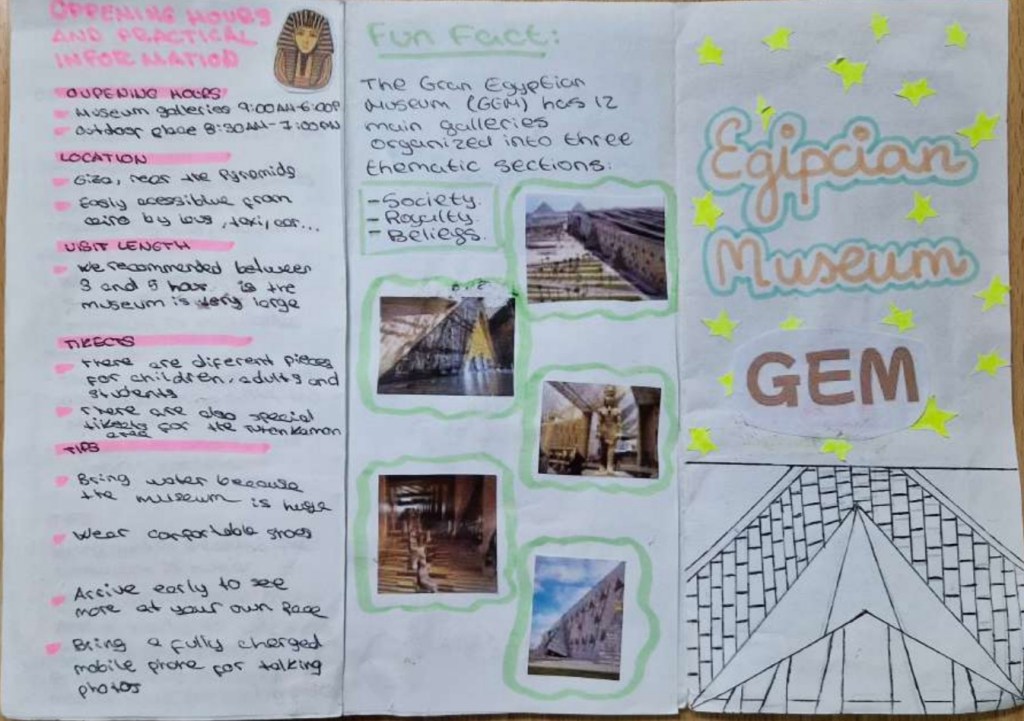 OPPENING HOURS
AND PRACTICAL
INFORMATION
OUPENING HOURS
Museum galleries 9:00AM-6:00PM
Outdoor place 8:30AM-7:00PM
LOCATION
Giza, near the Pyramids
Easily acessible from
cairo by bus, taxi, car...
VISIT LENGTH
We recommended between
3 and 5 hour is the
museum is very large
TIKECTS
There are diferent pieces
for children, adults and
students
There are also special
tikets for the Tutenkamon
area
TIPS
Bring water because
the museum is huge
Wear confortable shoes
Arrive early to see
more at your own Pace
Bring a fully charged
mobile phone for talking
photos
Fun Fact:
The Gran Egyptian
Museum (GEM) has 12
main galleries
organized into three
thematic sections:
- Society.
- Royalty.
- Beliefs.
Egipcian
Museum
GEM